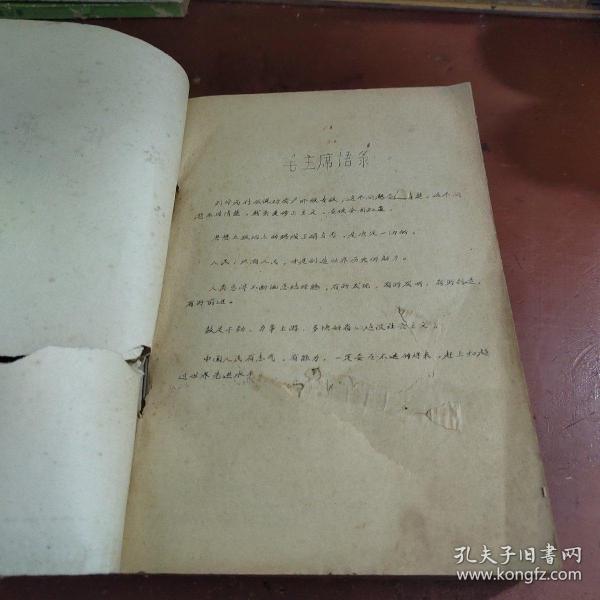 毛主席语录
思想上政治上的路线正确与否，是决定一切的。
人民，只有人民，才是创造世界历史的动力。
人类总得不断地总结经验，有所发现，有所发明，有所创造，
有所前进。
鼓足干劲，力争上游，多快好省地建设社会主义。
中国人民有志气，有能力，一定要在不远的将来，赶上和超
过世界先进水平
孔夫子旧书网
www.kongfz.com